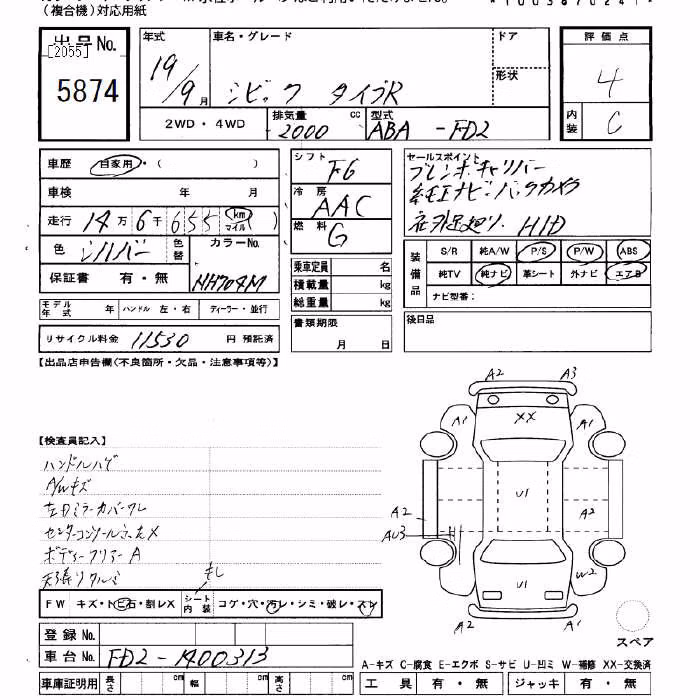 (複合機)対応用紙
出品No. 年式 車名・グレード ドア 評価点
[2055]
5874 19/9月 シビック タイプR 形状 4
2WD・4WD 排気量 2000 cc 型式 ABA-FD2 内装 C
車歴 自家用・( ) シフト F6 セールスポイント
ブレンボキャリパー
車検 年 月 冷房 AAC 純正ナビ・バックカメラ
走行 14万6千655 km マイル ( ) 燃料 G HID
色 シルバー 色替 カラーNo. NH704M
保証書 有・無
乗車定員 名
積載量 kg
総重量 kg
装備品 S/R 純A/W P/S P/W ABS
純TV 純ナビ 革シート 外ナビ エアB
ナビ型番:
モデル年式 年 ハンドル 左・右 ディーラー・並行
書類期限 月 日
後日品
リサイクル料金 11530 円 預託済
【出品店申告欄(不良箇所・欠品・注意事項等)】
A2 A3
XX
A1 A1
【検査員記入】
ハンドルハゲ
A/Wキズ
左ドアミラーカバーワレ
ボディークリアーA
U1
A2 A2
AU3
U1 W2
A1
FW キズ・トビ石・割レX シート内装 コゲ・穴・汚レ・シミ・破レ・スレ
もし
登録No.
車台No. FD2-1400313
スペア
A-キズ C-腐食 E-エクボ S-サビ U-凹ミ W-補修 XX-交換済
車庫証明用 長さ cm 幅 cm 高さ cm 工具 有・無 ジャッキ 有・無